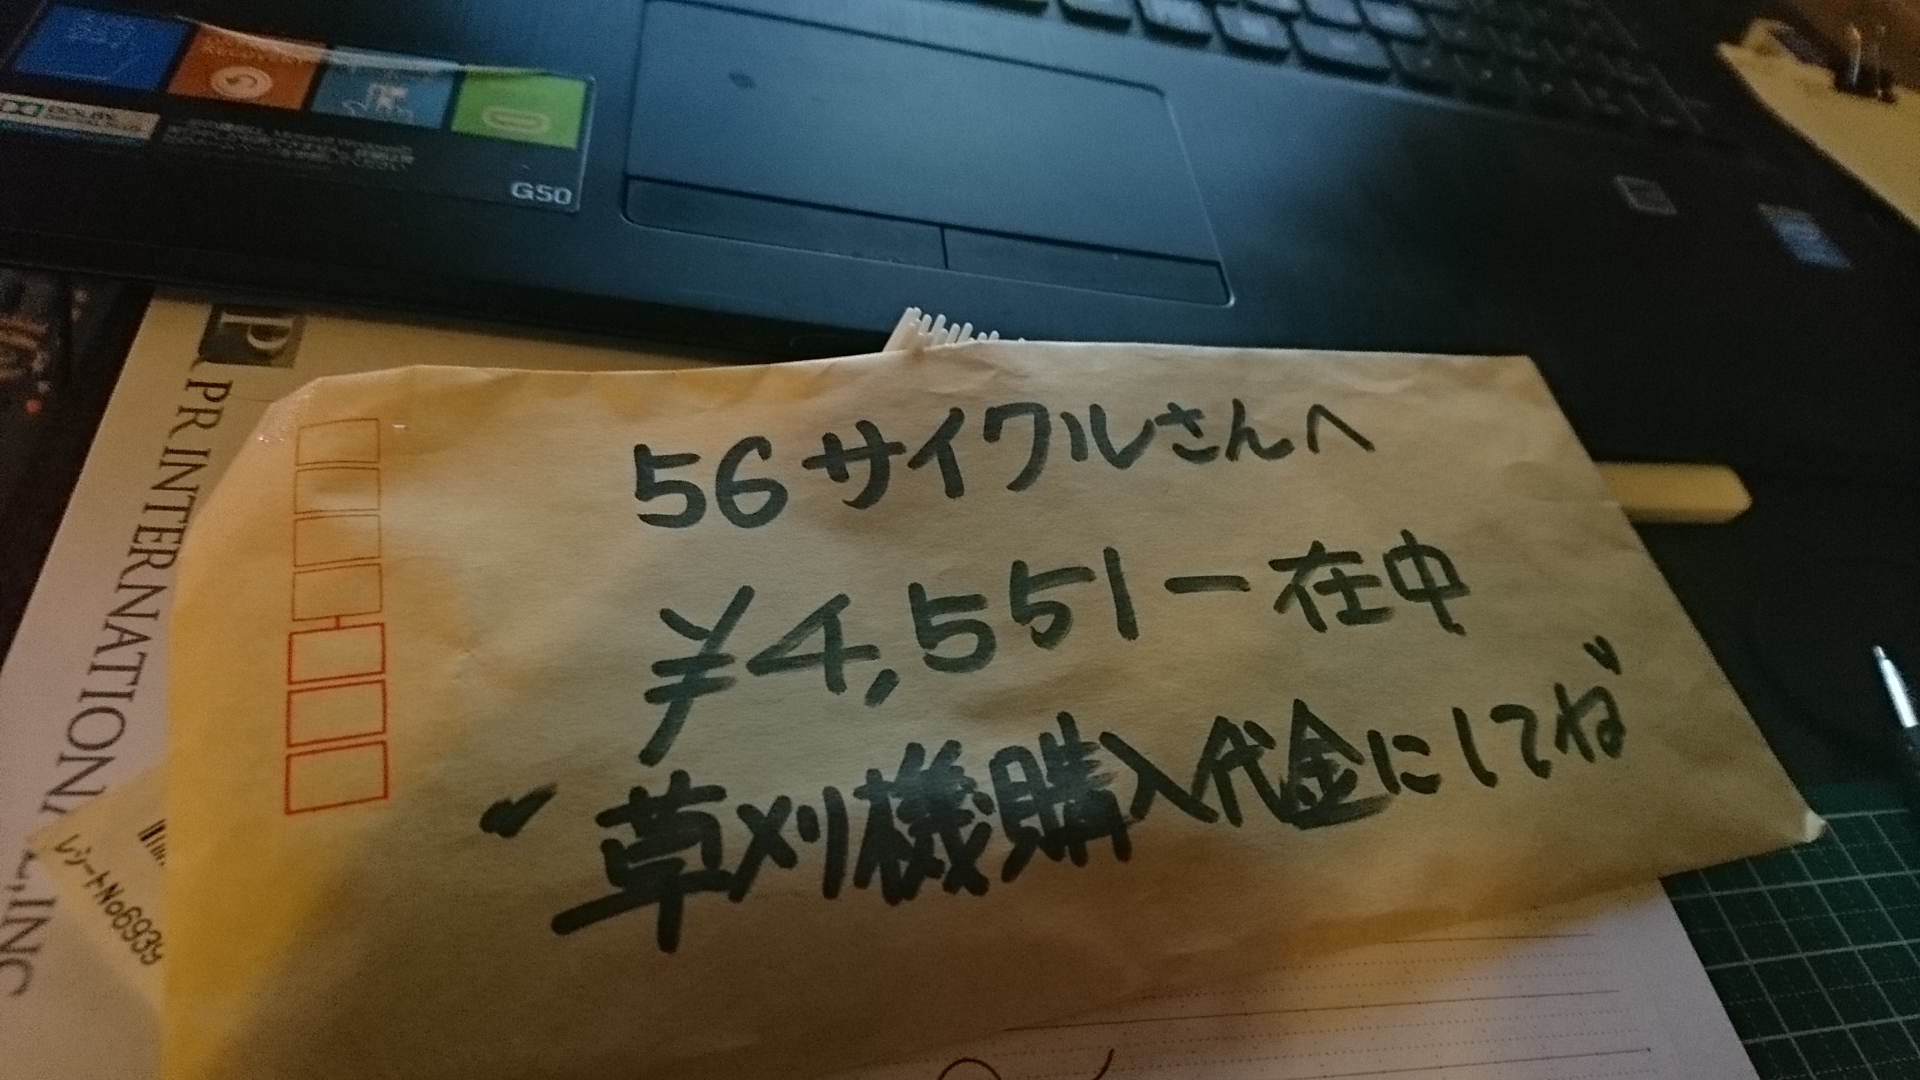 DOLBY
G50
P
PR INTERNATIONAL, INC
56サイクルさんへ
¥4,551ー在中
"草刈機購入代金にしてね"
レシートNo6939